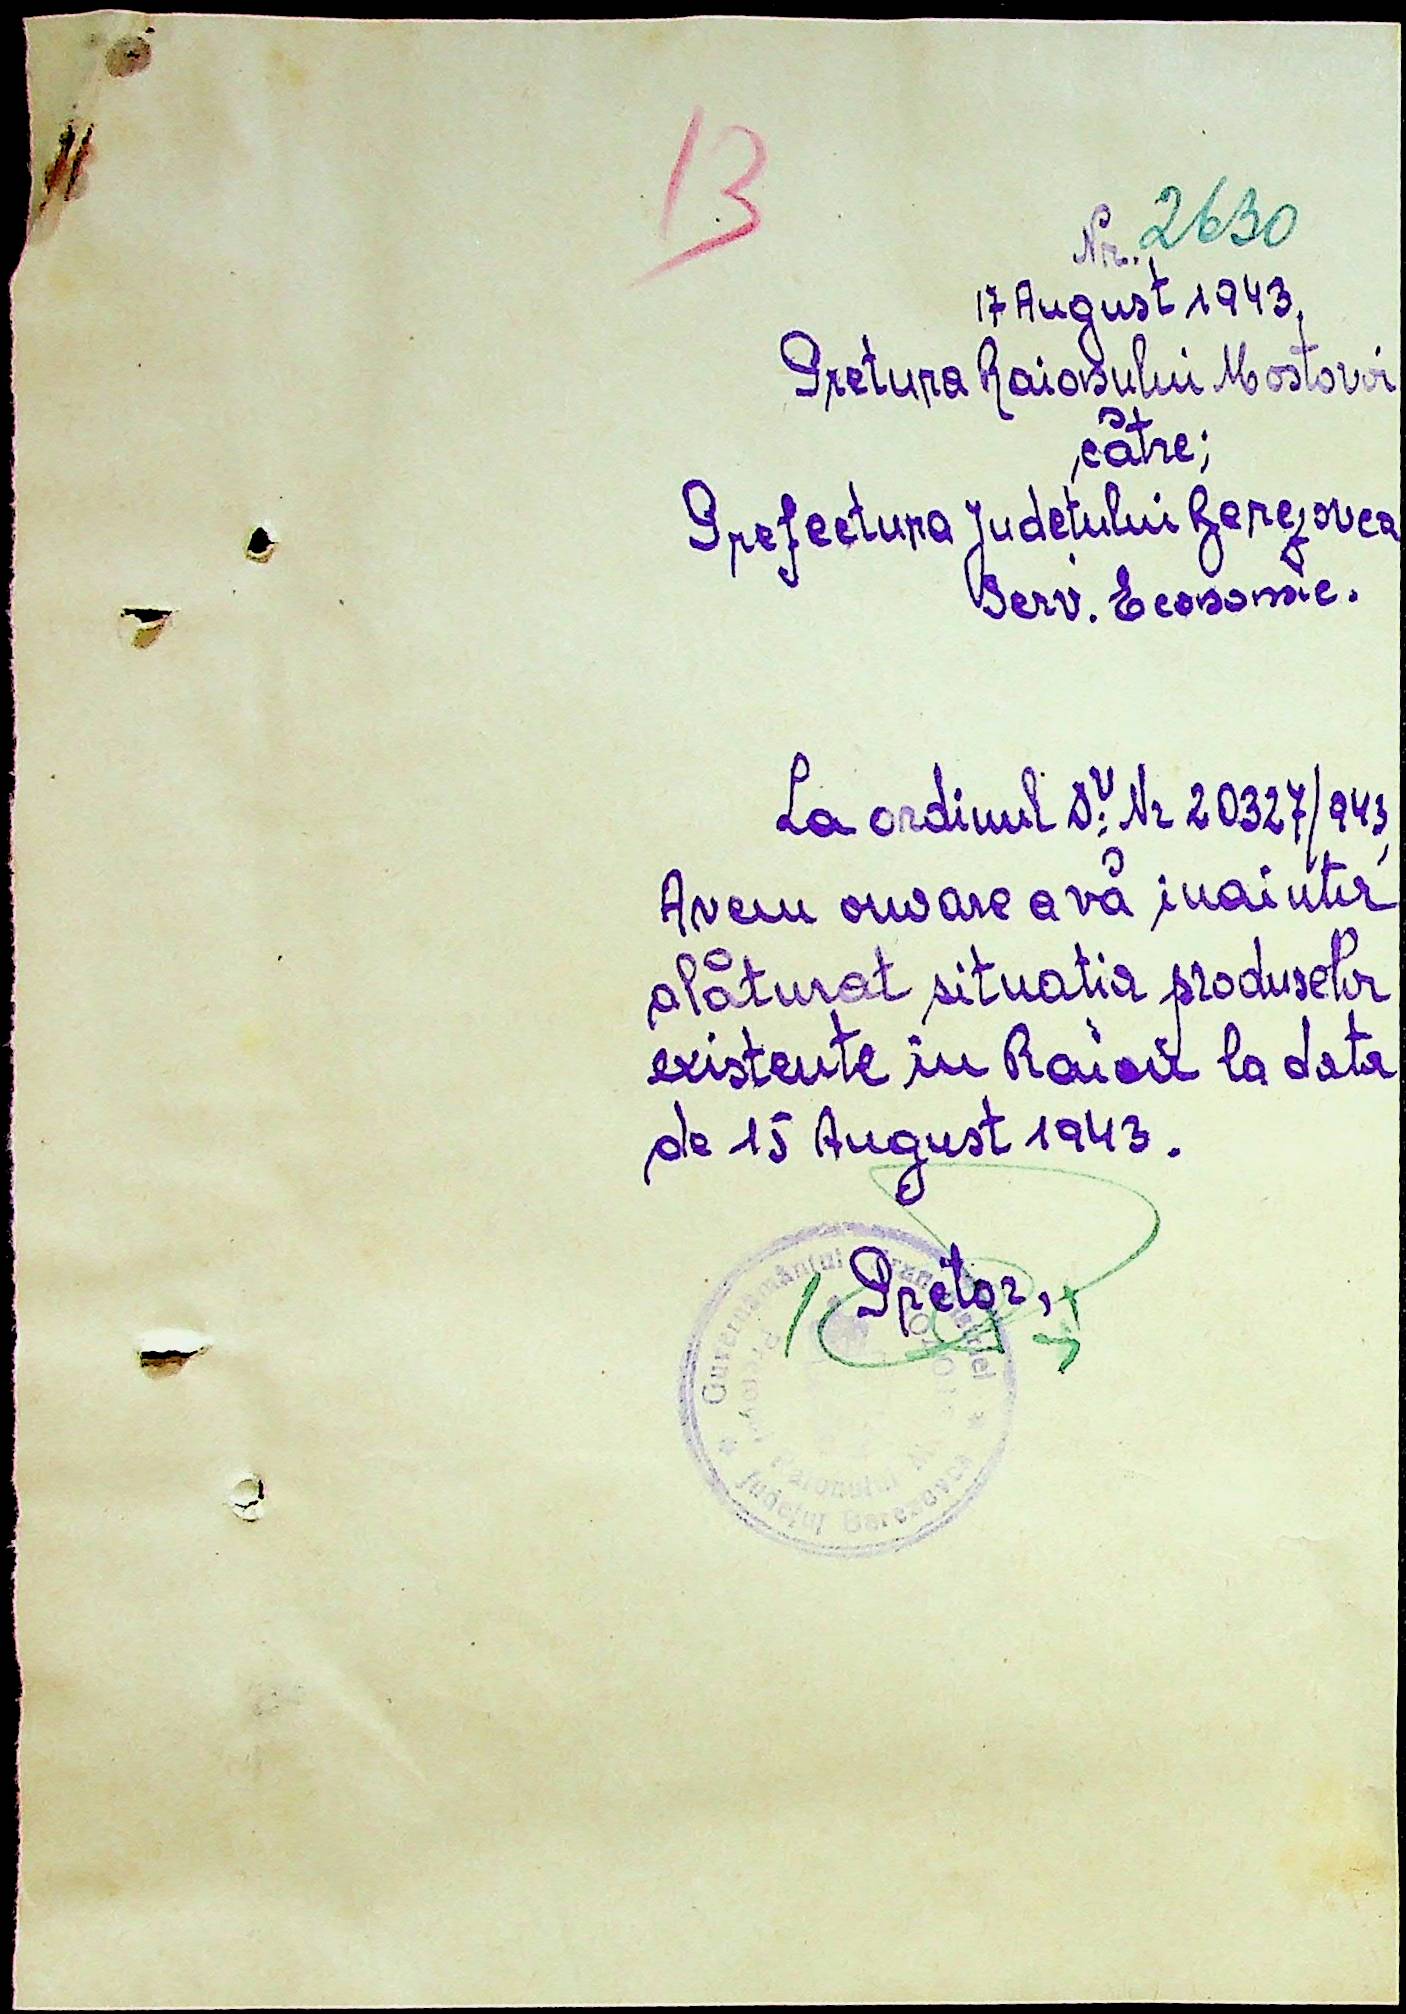 13
Nr. 2630
17 August 1943,
Pretura Raionului Mostovoi
către;
Prefectura Judetului Berezovca
Serv. Economic.
La ordinul D.V. Nr 20327/943,
Avem onoare a vă inainta
alăturat situatia produselor
existente in Raion la data
de 15 August 1943.
Pretor,
Guvernământul Transnistriei
Pretura Raionului
Județul Berezovca